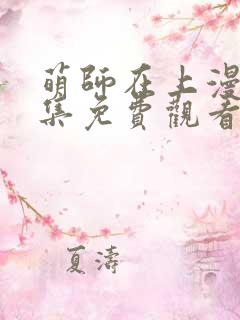 萌師在上漫
集免費觀看
夏濤